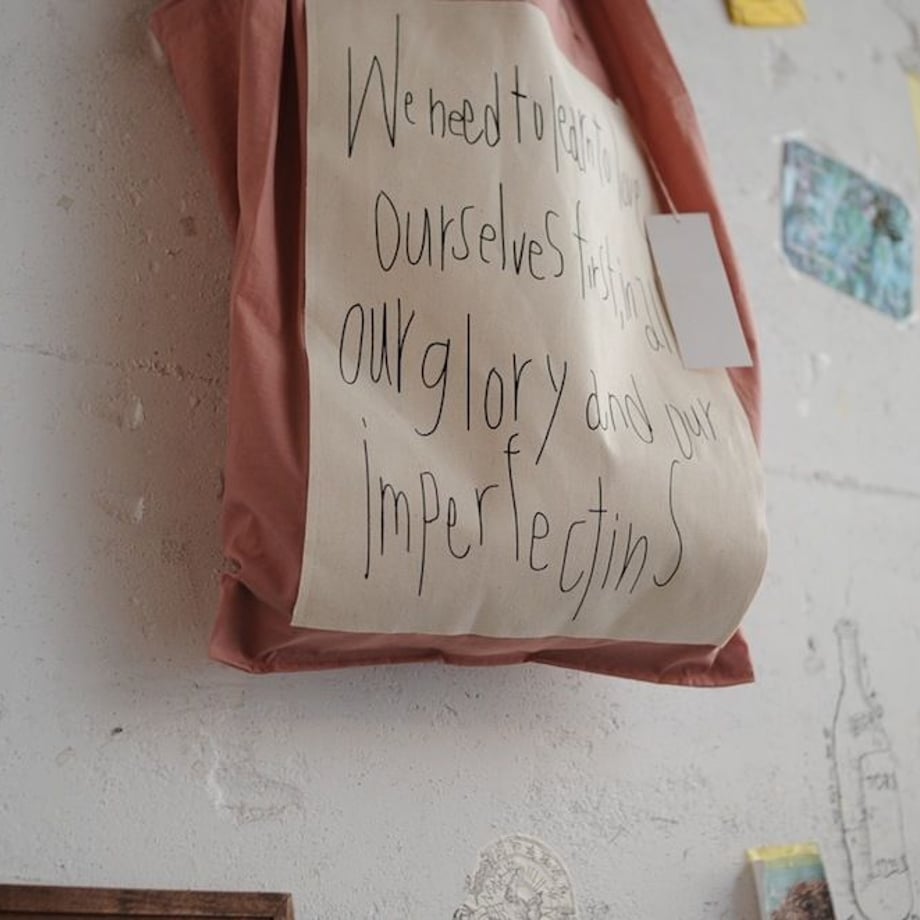 We need to learn to love
ourselves first, in al
our glory and our
imperfectins